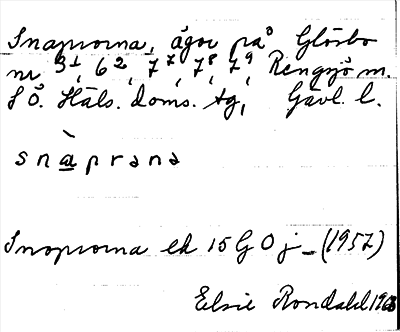 Snaprorna, ägor på Glösbo
nr 3¹, 6², 7⁷, 7⁸, 7⁹, Rengsjö m.
S Ö. Häls. doms. tg, Gävl. l.
snàprənə
Snoprorna ek 15G0j - (1957)
Elsie Rondahl 1968